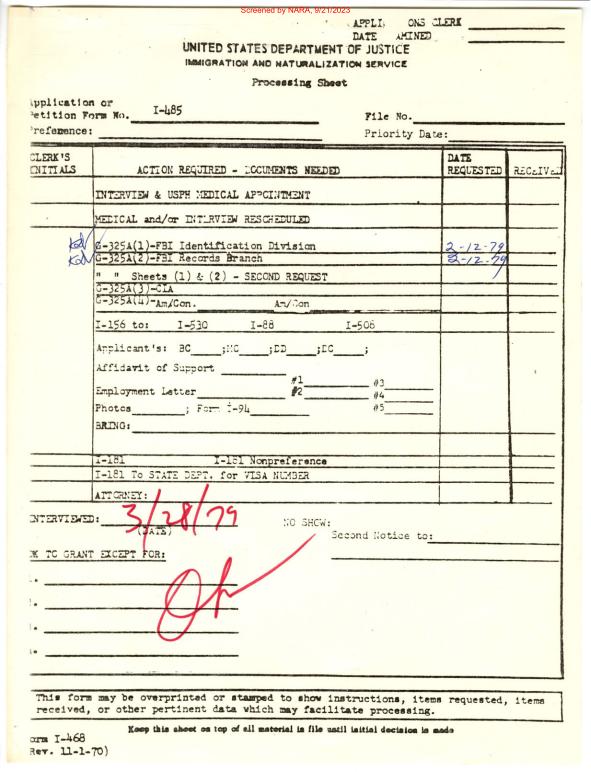 Screened by NARA, 9/21/2023
APPLI ONS CLERK
DATE AMINED
UNITED STATES DEPARTMENT OF JUSTICE
IMMIGRATION AND NATURALIZATION SERVICE
Processing Sheet
Application or
Petition Form No. I-485 File No.
Preference: Priority Date:
CLERK'S INITIALS ACTION REQUIRED - DOCUMENTS NEEDED DATE REQUESTED RECEIVED
INTERVIEW & USPH MEDICAL APPOINTMENT
MEDICAL and/or INTERVIEW RESCHEDULED
G-325A(1)-FBI Identification Division 2-12-79
G-325A(2)-FBI Records Branch 2-12-79
" " Sheets (1) & (2) - SECOND REQUEST
G-325A(3)-CIA
G-325A(4)-Am/Con. Am/Con
I-156 to: I-530 I-88 I-508
Applicant's: BC ;MC ;DD ;DC ;
Affidavit of Support
#1 #3
Employment Letter #2 #4
Photos ; Form I-94 #5
BRING:
I-181 I-181 Nonpreference
I-181 To STATE DEPT. for VISA NUMBER
ATTORNEY:
INTERVIEWED: 3/28/79 NO SHOW:
(DATE) Second Notice to:
OK TO GRANT EXCEPT FOR:
This form may be overprinted or stamped to show instructions, items requested, items
received, or other pertinent data which may facilitate processing.
Keep this sheet on top of all material in file until initial decision is made
orm I-468
Rev. 11-1-70)